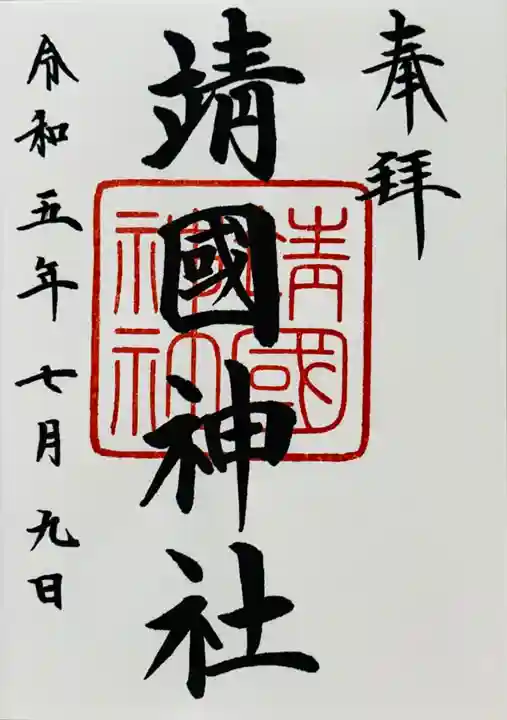 奉拝
靖國神社
靖國
神社
令和五年七月九日